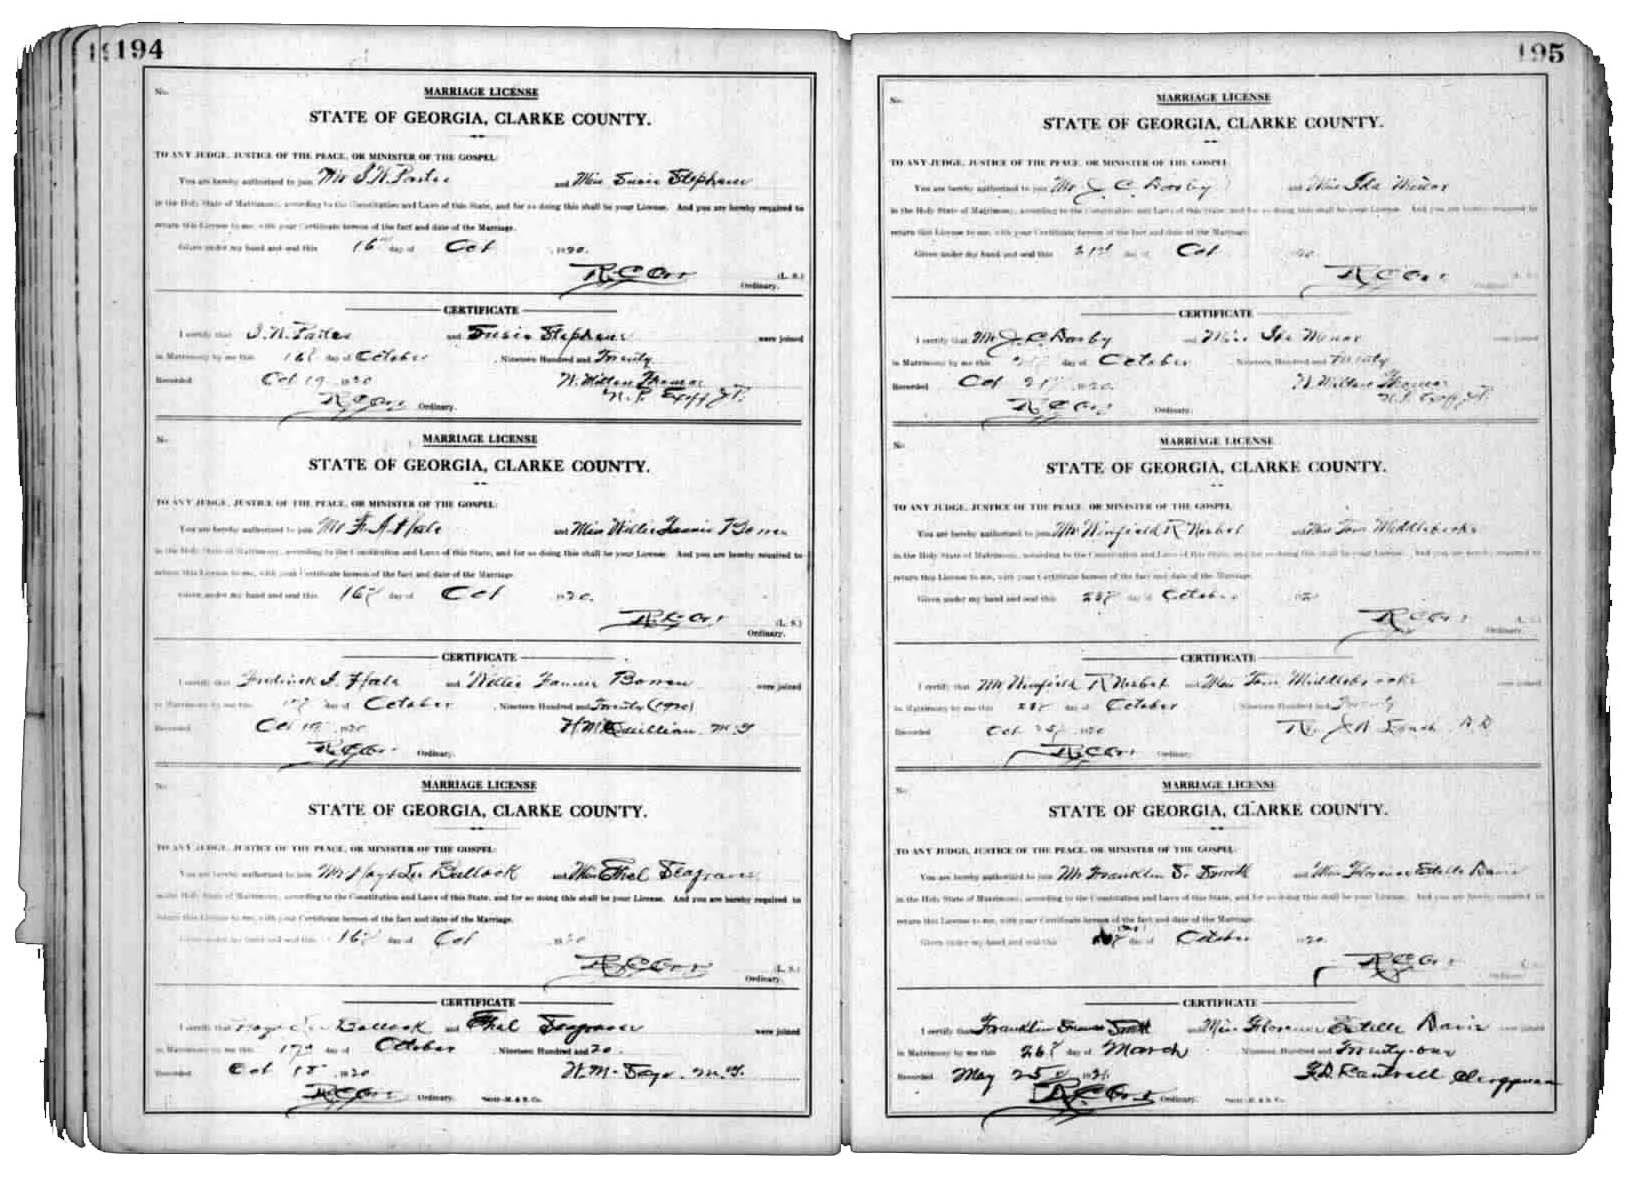 194
No.
MARRIAGE LICENSE
STATE OF GEORGIA, CLARKE COUNTY.
TO ANY JUDGE, JUSTICE OF THE PEACE, OR MINISTER OF THE GOSPEL:
You are hereby authorized to join Mr and Miss Susie Stephens
in the Holy State of Matrimony, according to the Constitution and Laws of this State, and for so doing this shall be your License. And you are hereby required to
return this License to me, with your Certificate hereon of the fact and date of the Marriage.
Given under my hand and seal this 16 day of Oct 1920.
R C Orr (L. S.)
Ordinary.
CERTIFICATE
I certify that and Susie Stephens were joined
in Matrimony by me this 16 day of October, Nineteen Hundred and Twenty
Recorded Oct 19 1920 Thomas
R C Orr Ordinary.
No.
MARRIAGE LICENSE
STATE OF GEORGIA, CLARKE COUNTY.
TO ANY JUDGE, JUSTICE OF THE PEACE, OR MINISTER OF THE GOSPEL:
You are hereby authorized to join Mr Hale and Miss Willie Fannie Bowen
in the Holy State of Matrimony, according to the Constitution and Laws of this State, and for so doing this shall be your License. And you are hereby required to
return this License to me, with your Certificate hereon of the fact and date of the Marriage.
Given under my hand and seal this 16 day of Oct 1920.
R C Orr (L. S.)
Ordinary.
CERTIFICATE
I certify that Frederick Hale and Willie Fannie Bowen were joined
in Matrimony by me this day of October, Nineteen Hundred and Twenty (1920)
Recorded Oct 19 1920 M. G.
R C Orr Ordinary.
No.
MARRIAGE LICENSE
STATE OF GEORGIA, CLARKE COUNTY.
TO ANY JUDGE, JUSTICE OF THE PEACE, OR MINISTER OF THE GOSPEL:
You are hereby authorized to join Mr Hoyt Lee Bullock and Miss Ethel Seagraves
in the Holy State of Matrimony, according to the Constitution and Laws of this State, and for so doing this shall be your License. And you are hereby required to
return this License to me, with your Certificate hereon of the fact and date of the Marriage.
Given under my hand and seal this 16 day of Oct 1920
R C Orr (L. S.)
Ordinary.
CERTIFICATE
I certify that Bullock and Ethel Seagraves were joined
in Matrimony by me this 17 day of October, Nineteen Hundred and 20.
Recorded Oct 1920 M. G.
R C Orr Ordinary.
195
No.
MARRIAGE LICENSE
STATE OF GEORGIA, CLARKE COUNTY.
TO ANY JUDGE, JUSTICE OF THE PEACE, OR MINISTER OF THE GOSPEL:
You are hereby authorized to join Mr J. C. and Miss Ida
in the Holy State of Matrimony, according to the Constitution and Laws of this State, and for so doing this shall be your License. And you are hereby required to
return this License to me, with your Certificate hereon of the fact and date of the Marriage.
Given under my hand and seal this 21st day of Oct
R C Orr (L. S.)
Ordinary.
CERTIFICATE
I certify that Mr J. C. and Miss Ida were joined
in Matrimony by me this day of October Nineteen Hundred and Twenty
Recorded Oct 1920. Thomas
R C Orr Ordinary.
No.
MARRIAGE LICENSE
STATE OF GEORGIA, CLARKE COUNTY.
TO ANY JUDGE, JUSTICE OF THE PEACE, OR MINISTER OF THE GOSPEL
You are hereby authorized to join Mr Winfield R Nisbet and Miss Middlebrooks
in the Holy State of Matrimony, according to the Constitution and Laws of this State, and for so doing this shall be your License. And you are hereby required to
return this License to me, with your Certificate hereon of the fact and date of the Marriage.
Given under my hand and seal this day of October
R C Orr (L. S.)
Ordinary.
CERTIFICATE
I certify that Mr Winfield R Nisbet and Miss Middlebrooks were joined
in Matrimony by me this day of October Nineteen Hundred and Twenty
Recorded Oct 1920
R C Orr Ordinary.
No.
MARRIAGE LICENSE
STATE OF GEORGIA, CLARKE COUNTY.
TO ANY JUDGE, JUSTICE OF THE PEACE, OR MINISTER OF THE GOSPEL:
You are hereby authorized to join Mr Franklin and Miss Florence Estelle Davis
in the Holy State of Matrimony, according to the Constitution and Laws of this State, and for so doing this shall be your License. And you are hereby required to
return this License to me, with your Certificate hereon of the fact and date of the Marriage.
Given under my hand and seal this day of October 1920.
R C Orr
Ordinary.
CERTIFICATE
I certify that Franklin and Miss Florence Estelle Davis were joined
in Matrimony by me this 26 day of March Nineteen Hundred and Twenty-one
Recorded May 25 1921. Clergyman
R C Orr Ordinary.